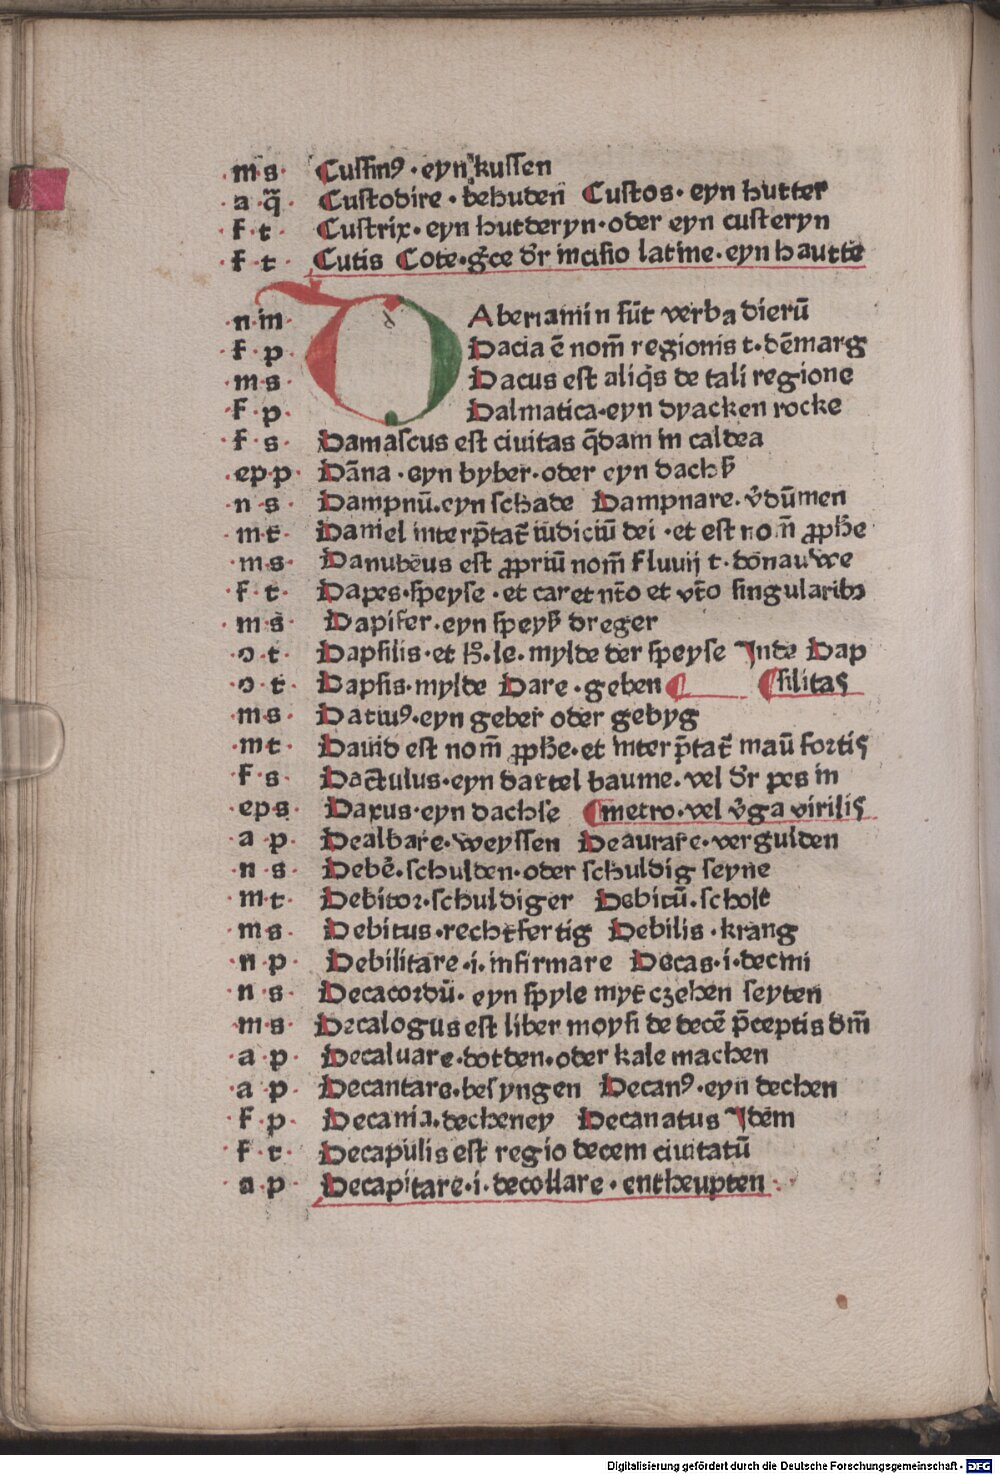 ·m·s· Cussinꝰ·eyn kussen
·a·q̃· Custodire·behuden Custos·eyn hutter
·f·t· Custrix·eyn hutderyn·oder eyn custeryn
·f·t· Cutis Cote·gͬce dr̄ incisio latine·eyn hautte
·n·m· DAberiamin sūt verba dierū
·f·p· Dacia ē nom̄ regionis t·dēmarg
·m·s· Dacus est aliq̄s de tali regione
·f·p· Dalmatica·eyn dyacken rocke
·f·s· Damascus est ciuitas q̄dam in caldea
·ep·p· Dāna·eyn byber·oder eyn dachß
·n·s· Dampnū·eyn schade Dampnare·v̄dūmen
·m·t· Daniel interp̄tat̄ iudiciū dei·et est no n̄ ꝓph̄e
·m·s· Danubēus est ꝓpriū nom̄ fluuij t·donauwe
·f·t· Dapes·speyse·et caret nt̄o et vt̄o singularibꝫ
·m·s· Dapifer·eyn speyß dreger
·o·t· Dapsilis·et ħ·le·mylde der speyse Inde Dap
·o·t· Dapsis·mylde Dare·geben silitas
·m·s· Datiuꝰ·eyn geber oder gebyg
·m·t· Dauid est nom̄ ꝓph̄e·et interp̄tat̄ manū fortis
·f·s· Dactulus·eyn dattel baume·vel dr̄ pes in
·ep·s· Daxus·eyn dachse metro·vel v̄ga virilis
·a·p· Dealbare·weyssen Deaurare·vergulden
·n·s· Debē·schulden·oder schuldig seyne
·m·t· Debitor·schuldiger Debitū·scholt
·m·s· Debitus·rechtfertig Debilis·krang
·n·p· Debilitare·i·infirmare Decas·i·decmi
·n·s· Decacordū·eyn spyle myt czehen seyten
·m·s· Decalogus est liber moysi de decē p̄ceptis dm̄
·a·p· Decaluare·dotden·oder kale machen
·a·p· Decantare·besyngen Decanꝰ·eyn dechen
·f·p· Decania·decheney Decanatus Idem
·f·t· Decapulis est regio decem ciuitatū
·a·p· Decapitare·i·decollare·entheupten
Digitalisierung gefördert durch die Deutsche Forschungsgemeinschaft - DFG